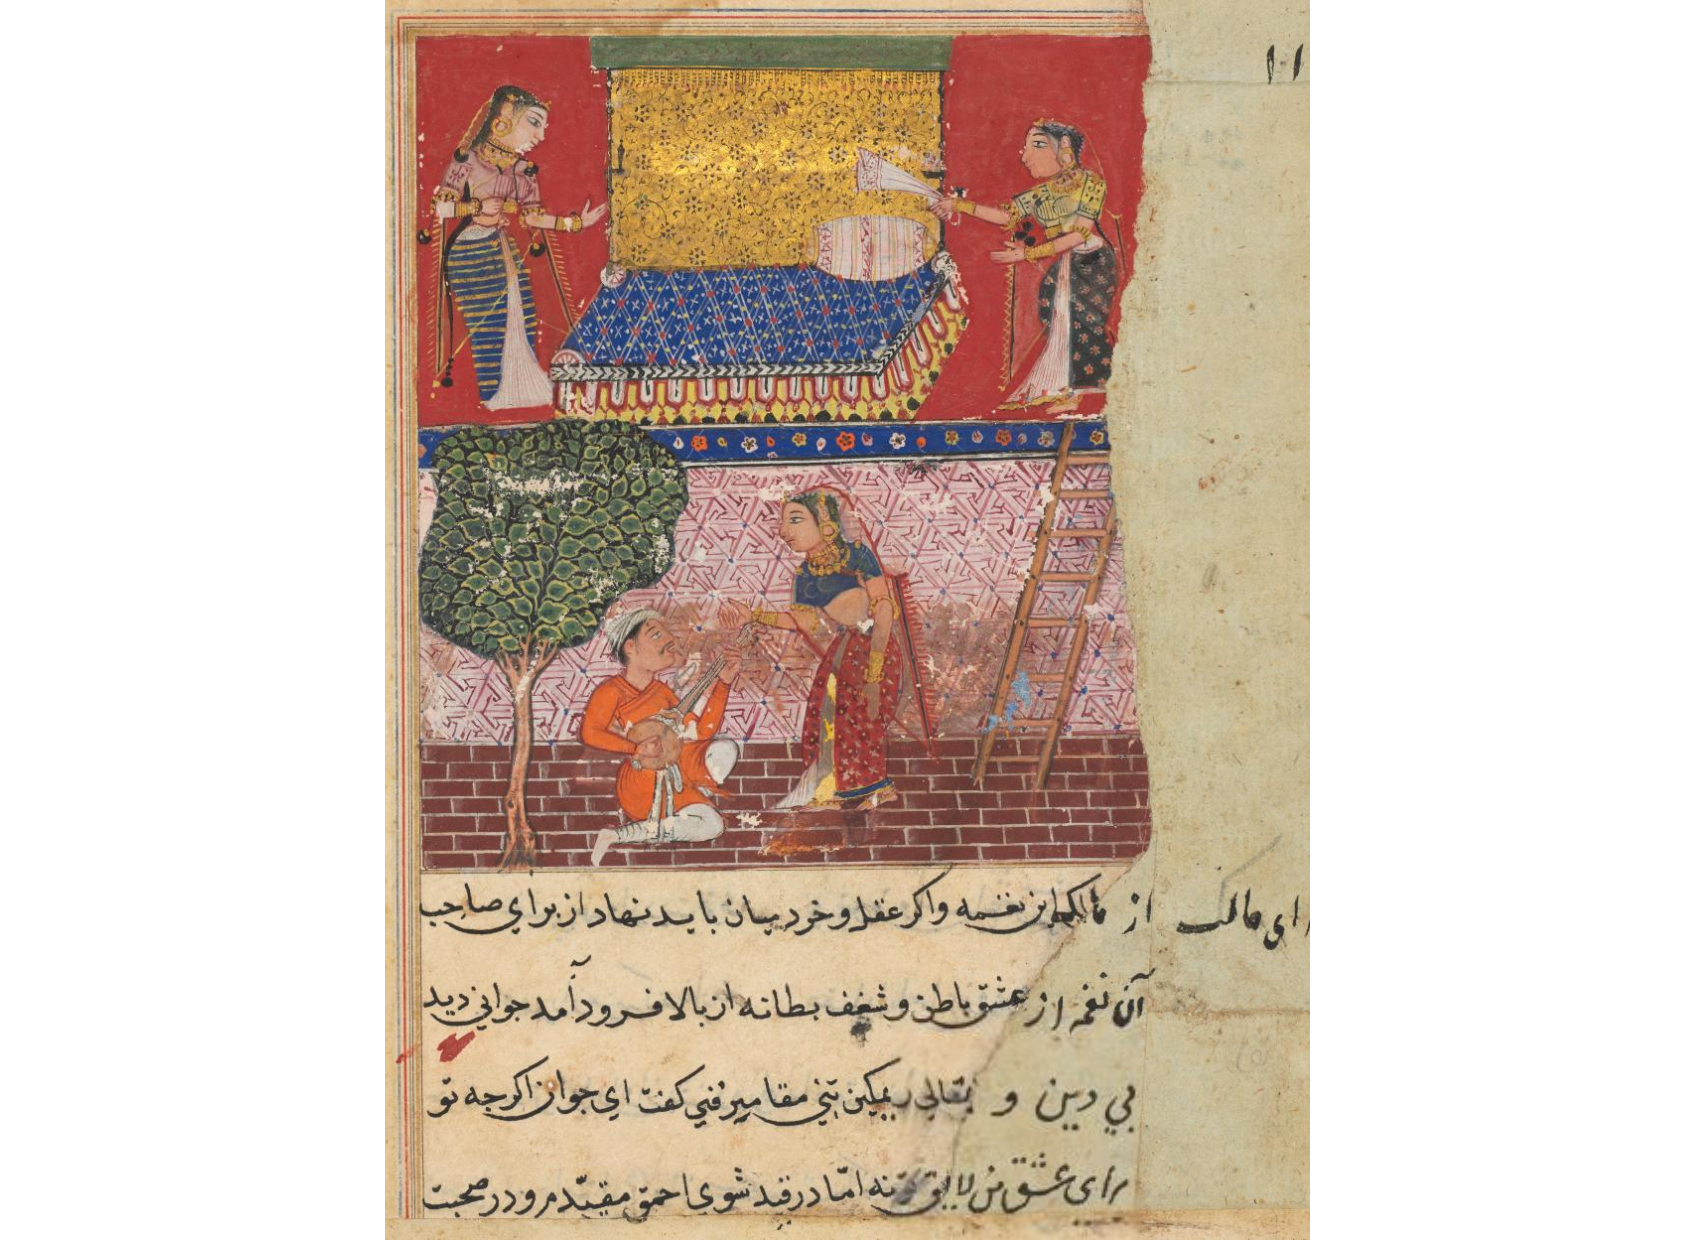 ١٠١
رای مالک از مالک این نغمه واکر عقل و خرد میان باید نهاد از برای صاحب
آن نغمه از عشق باطن و شغف بطانه از بالا فرود آمد جوانی دید
بی دین و مقامر فنی کفت ای جوان اکرجه تو
رای عشق من لایق نه امّا در قید شوی احمق مقیّد مرو در صحبت